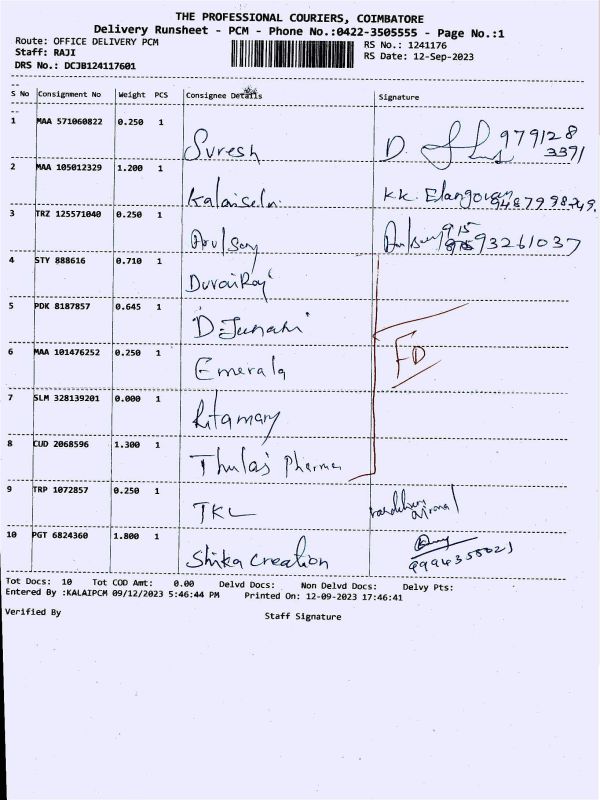 THE PROFESSIONAL COURIERS, COIMBATORE
Delivery Runsheet - PCM - Phone No.:0422-3505555 - Page No.:1
Route: OFFICE DELIVERY PCM
RS No.: 1241176
Staff: RAJI
RS Date: 12-Sep-2023
DRS No.: DCJB124117601
S No Consignment No Weight PCS Consignee Details Signature
1 MAA 571060822 0.250 1
Suresh D. 979128
3391
2 MAA 105012329 1.200 1
Kalaiselvi KK. Elangovan
3 TRZ 125571040 0.250 1
93261037
4 STY 888616 0.710 1
DuraiRaj
5 PDK 8187857 0.645 1
6 MAA 101476252 0.250 1
Emerala
FD
7 SLM 328139201 0.000 1
Ritamary
8 CUD 2068596 1.300 1
Thulasi Pharma
9 TRP 1072857 0.250 1
TKL
10 PGT 6824360 1.800 1
Shika creation
Tot Docs: 10 Tot COD Amt: 0.00 Delvd Docs: Non Delvd Docs: Delvy Pts:
Entered By :KALAIPCM 09/12/2023 5:46:44 PM Printed On: 12-09-2023 17:46:41
Verified By Staff Signature